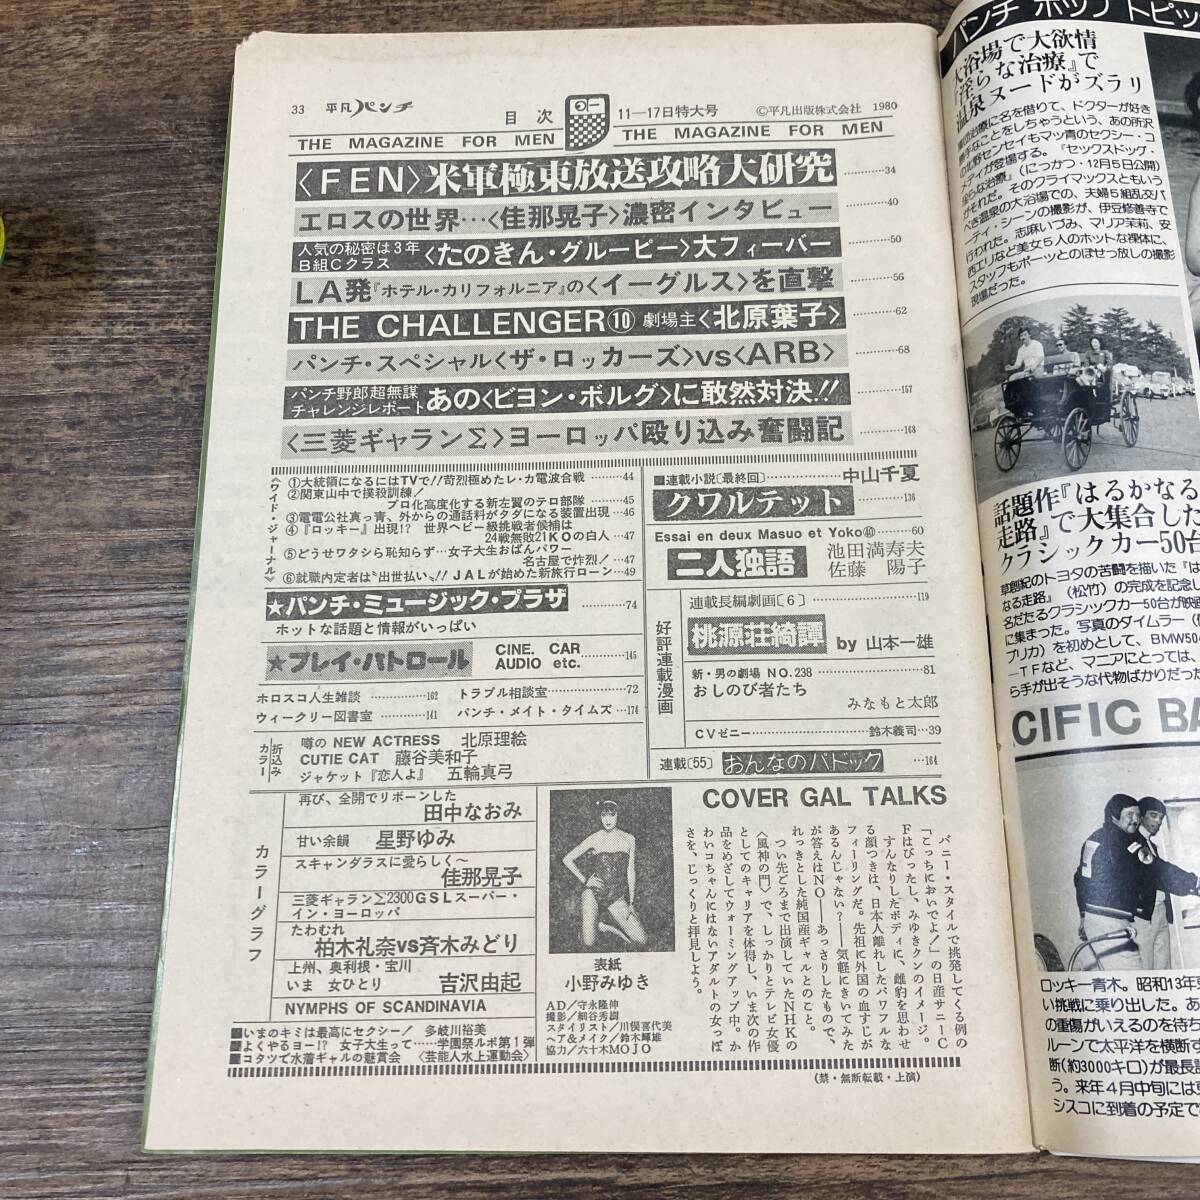 33 平凡パンチ
目次
11—17日特大号
©平凡出版株式会社 1980
THE MAGAZINE FOR MEN
THE MAGAZINE FOR MEN
〈FEN〉米軍極東放送攻略大研究…………34
エロスの世界…〈佳那晃子〉濃密インタビュー…………40
人気の秘密は3年
B組Cクラス
〈たのきん・グルーピー〉大フィーバー…………50
LA発『ホテル・カリフォルニア』の〈イーグルス〉を直撃…………56
THE CHALLENGER⑩ 劇場主〈北原葉子〉…………62
パンチ・スペシャル〈ザ・ロッカーズ〉vs〈ARB〉…………68
パンチ野郎超無謀
チャレンジレポート
あの〈ビヨン・ボルグ〉に敢然対決!!…………157
〈三菱ギャランΣ〉ヨーロッパ殴り込み奮闘記…………168
《ワイド・ジャーナル》
①大統領になるにはTVで!! 苛烈極めたレ・カ電波合戦…………44
②関東山中で撲殺訓練!
プロ化高度化する新左翼のテロ部隊…………45
③電電公社真っ青、外からの通話料がタダになる装置出現…46
④『ロッキー』出現!? 世界ヘビー級挑戦者候補は
24戦無敗21KOの白人…47
⑤どうせワタシら恥知らず…女子大生おばんパワー
名古屋で炸烈!…47
⑥就職内定者は〝出世払い〟!! JALが始めた新旅行ローン…49
★パンチ・ミュージック・プラザ…………74
ホットな話題と情報がいっぱい
★プレイ・パトロール
CINE. CAR
AUDIO etc.…………145
ホロスコ人生雑談…………162
トラブル相談室…………72
ウィークリー図書室…………141
パンチ・メイト・タイムズ…174
折込みカラー
噂の NEW ACTRESS 北原理絵
CUTIE CAT 藤谷美和子
ジャケット『恋人よ』 五輪真弓
■連載小説〔最終回〕…………中山千夏
クワルテット…………136
Essai en deux Masuo et Yoko㊵…………60
二人独語
池田満寿夫
佐藤 陽子
好評連載漫画
連載長編劇画〔6〕…………119
桃源荘綺譚 by 山本一雄
新・男の劇場 NO.238…………81
おしのび者たち
みなもと太郎
CVゼニー…………鈴木義司…39
連載〔55〕 おんなのパドック…164
カラーグラフ
再び、全開でリボーンした
田中なおみ
甘い余韻 星野ゆみ
スキャンダラスに愛らしく〜
佳那晃子
三菱ギャランΣ2300GSLスーパー・
イン・ヨーロッパ
たわむれ
柏木礼奈vs斉木みどり
上州、奥利根・宝川
いま 女ひとり 吉沢由起
NYMPHS OF SCANDINAVIA
■いまのキミは最高にセクシー! 多岐川裕美
■よくやるヨー!? 女子大生って……学園祭ルポ第1弾
■コタツで水着ギャルの魅賞会 〈芸能人水上運動会〉
表紙
小野みゆき
AD/守永隆伸
撮影/細谷秀樹
スタイリスト/川俣喜代美
ヘア&メイク/鈴木輝雄
協力/六十木MOJO
COVER GAL TALKS
バニー・スタイルで挑発してくる例の
「こっちにおいでよ!」の日産サニーC
Fはぴったし、みゆきクンのイメージ。
すんなりしたボディに、雌豹を思わせ
る顔つきは、日本人離れしたパワフルな
フィーリングだ。先祖に外国の血すじが
あるんじゃない?——気軽にきいてみた
が答えはNO——あっさりしたもので、
れっきとした純国産ギャルとのこと。
つい先ごろまで出演していたNHKの
〈風神の門〉で、しっかりとテレビ女優
としてのキャリアを体得し、いま次の作
品をめざしてウォーミングアップ中。か
わいコちゃんにはないアダルトの女っぽ
さを、じっくりと拝見しよう。
(禁・無断転載・上演)
パンチ ポップ トピッ
大浴場で大欲情
『淫らな治療』で
温泉ヌードがズラリ
治療に名を借りて、ドクターが好き
勝手なことをしちゃうという、あの所沢
の北野センセイもマッ青のセクシー・コ
メディが登場する。『セックスドッグ・
淫らな治療』(にっかつ・12月5日公開)
がそれだ。そのクライマックスともいう
べき温泉の大浴場での、夫婦5組乱交パ
ーティ・シーンの撮影が、伊豆修善寺で
行われた。志麻いづみ、マリア茉莉、安
西エリなど美女5人のホットな裸体に、
スタッフもボーッとのぼせっ放しの撮影
現場だった。
話題作『はるかなる
走路』で大集合した
クラシックカー50台
草創紀のトヨタの苦闘を描いた『は
なる走路』(松竹)の完成を記念し
名だたるクラシックカー50台が映画
に集まった。写真のダイムラー(
プリカ)を初めとして、BMW50
—TFなど、マニアにとっては、
ら手が出そうな代物ばかりだった
CIFIC BA
ロッキー青木。昭和13年
い挑戦に乗り出した。あ
の重傷がいえるのを待ち
ルーンで太平洋を横断す
断(約3000キロ)が最長記
う。来年4月中旬には
シスコに到着の予定で